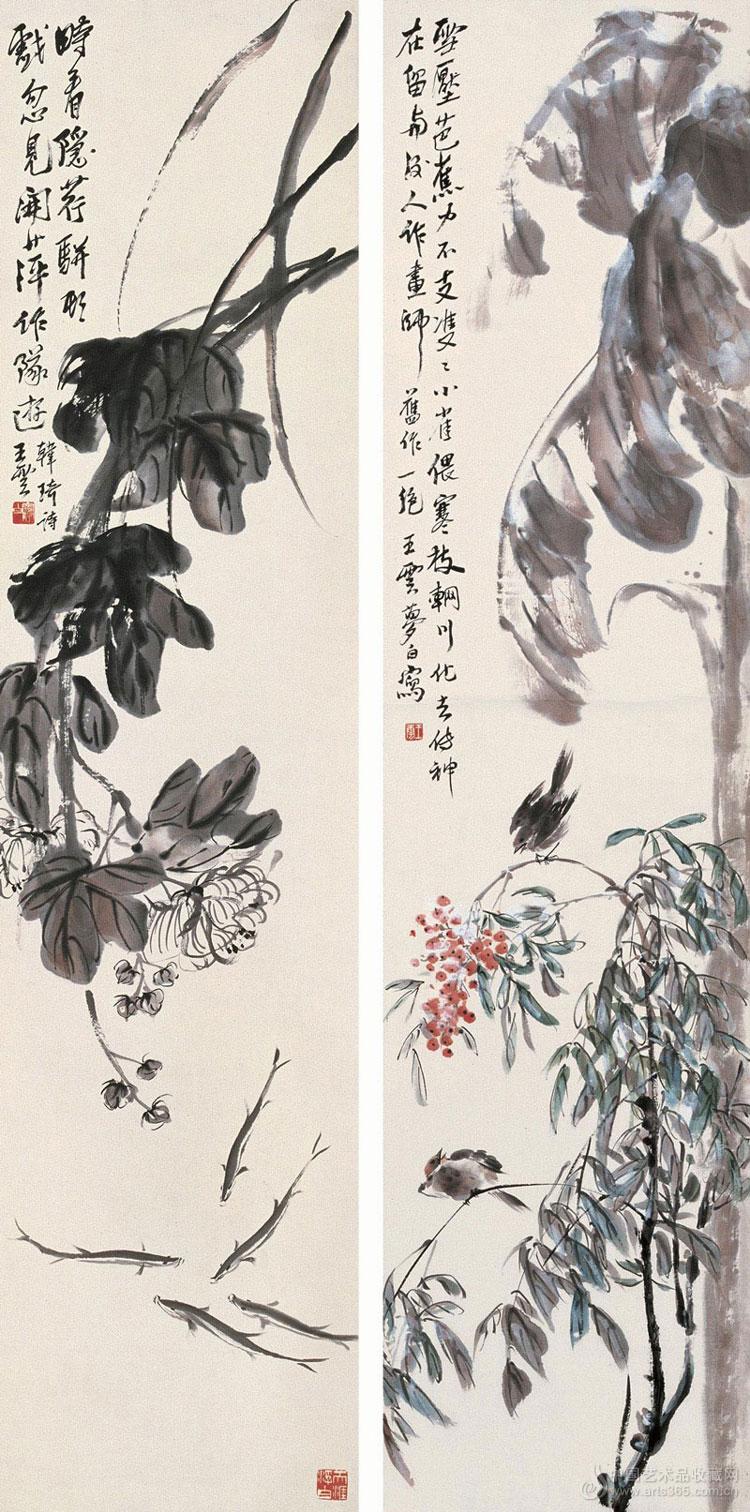 雪壓芭蕉力不支雙〻小雀偎寒枝輞川化去傳神
在留與後人畫師 舊作一絕 王雲夢白寫
時看隱荇駢頭
戲忽見開萍作隊遊
韓琦詩
王雲
中国艺术品收藏网
www.arts365.com.cn